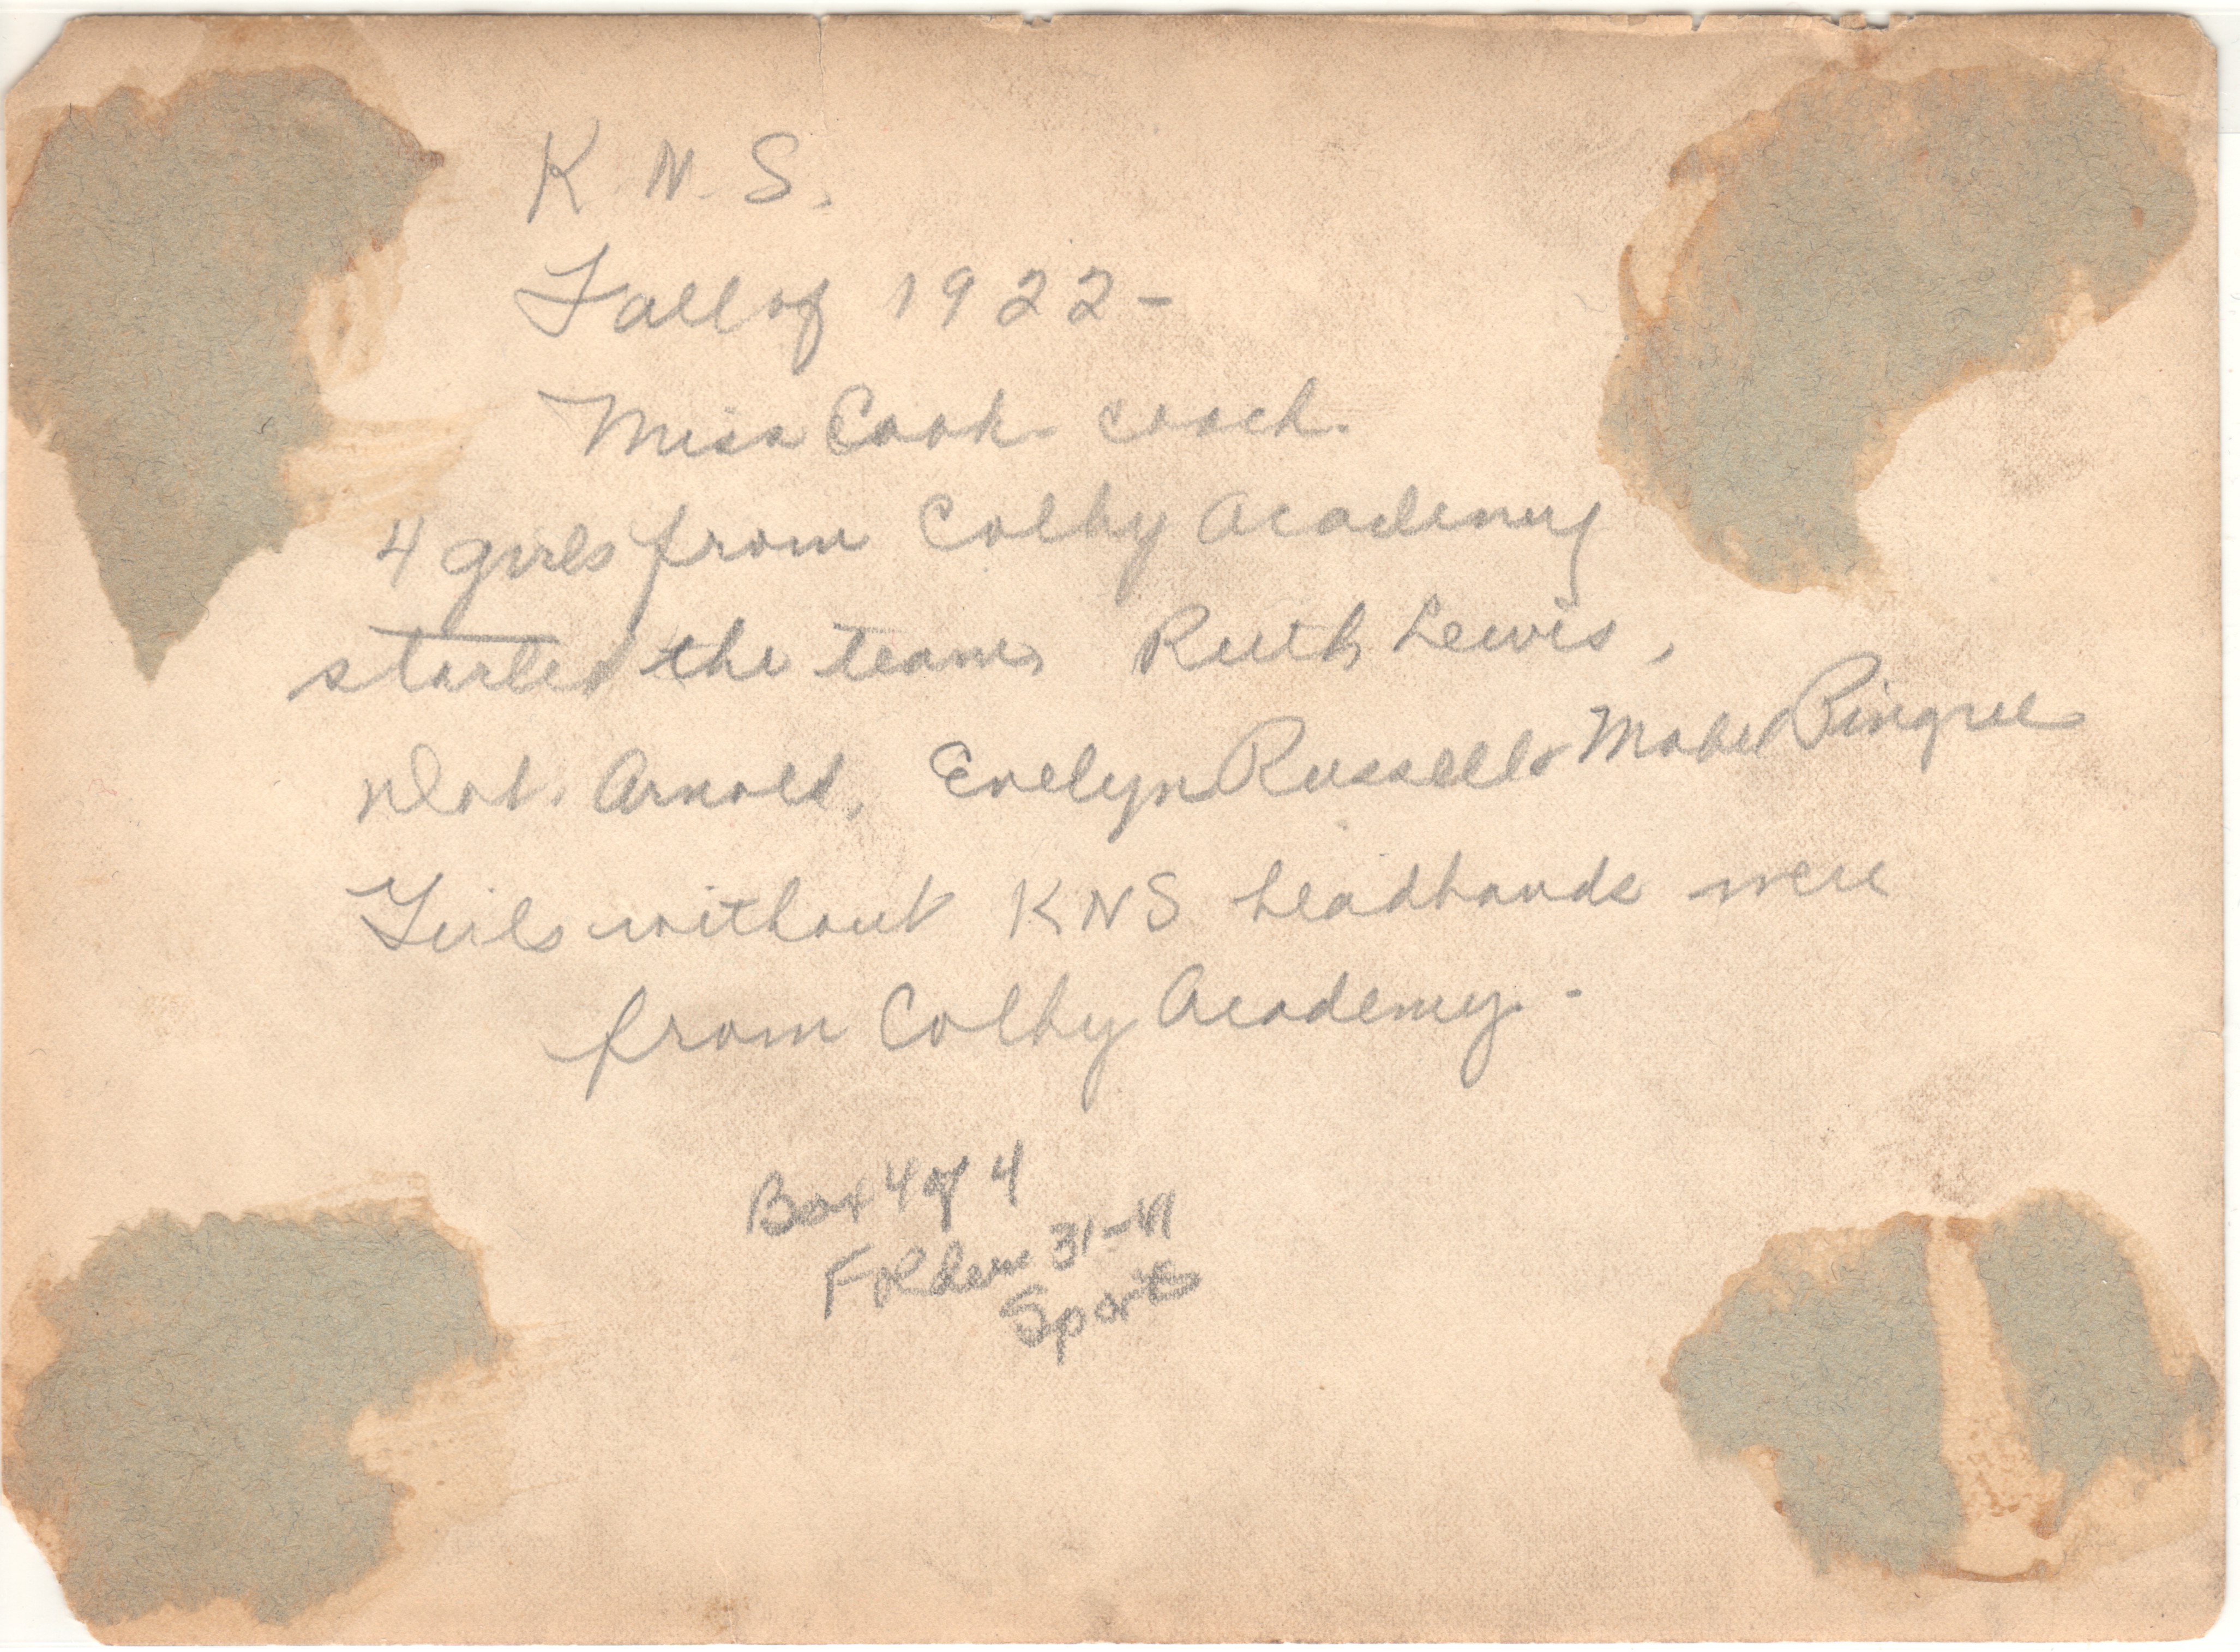 K. N. S.
Fall of 1922 -
Miss Cook - coach.
4 girls from Colby Academy
started the team, Ruth Lewis,
Dot. Arnold, Evelyn Russell & Mabel Pingree
Girls without KNS headbands were
from Colby Academy. -
Box 4 of 4
Folder 31-41
Sports